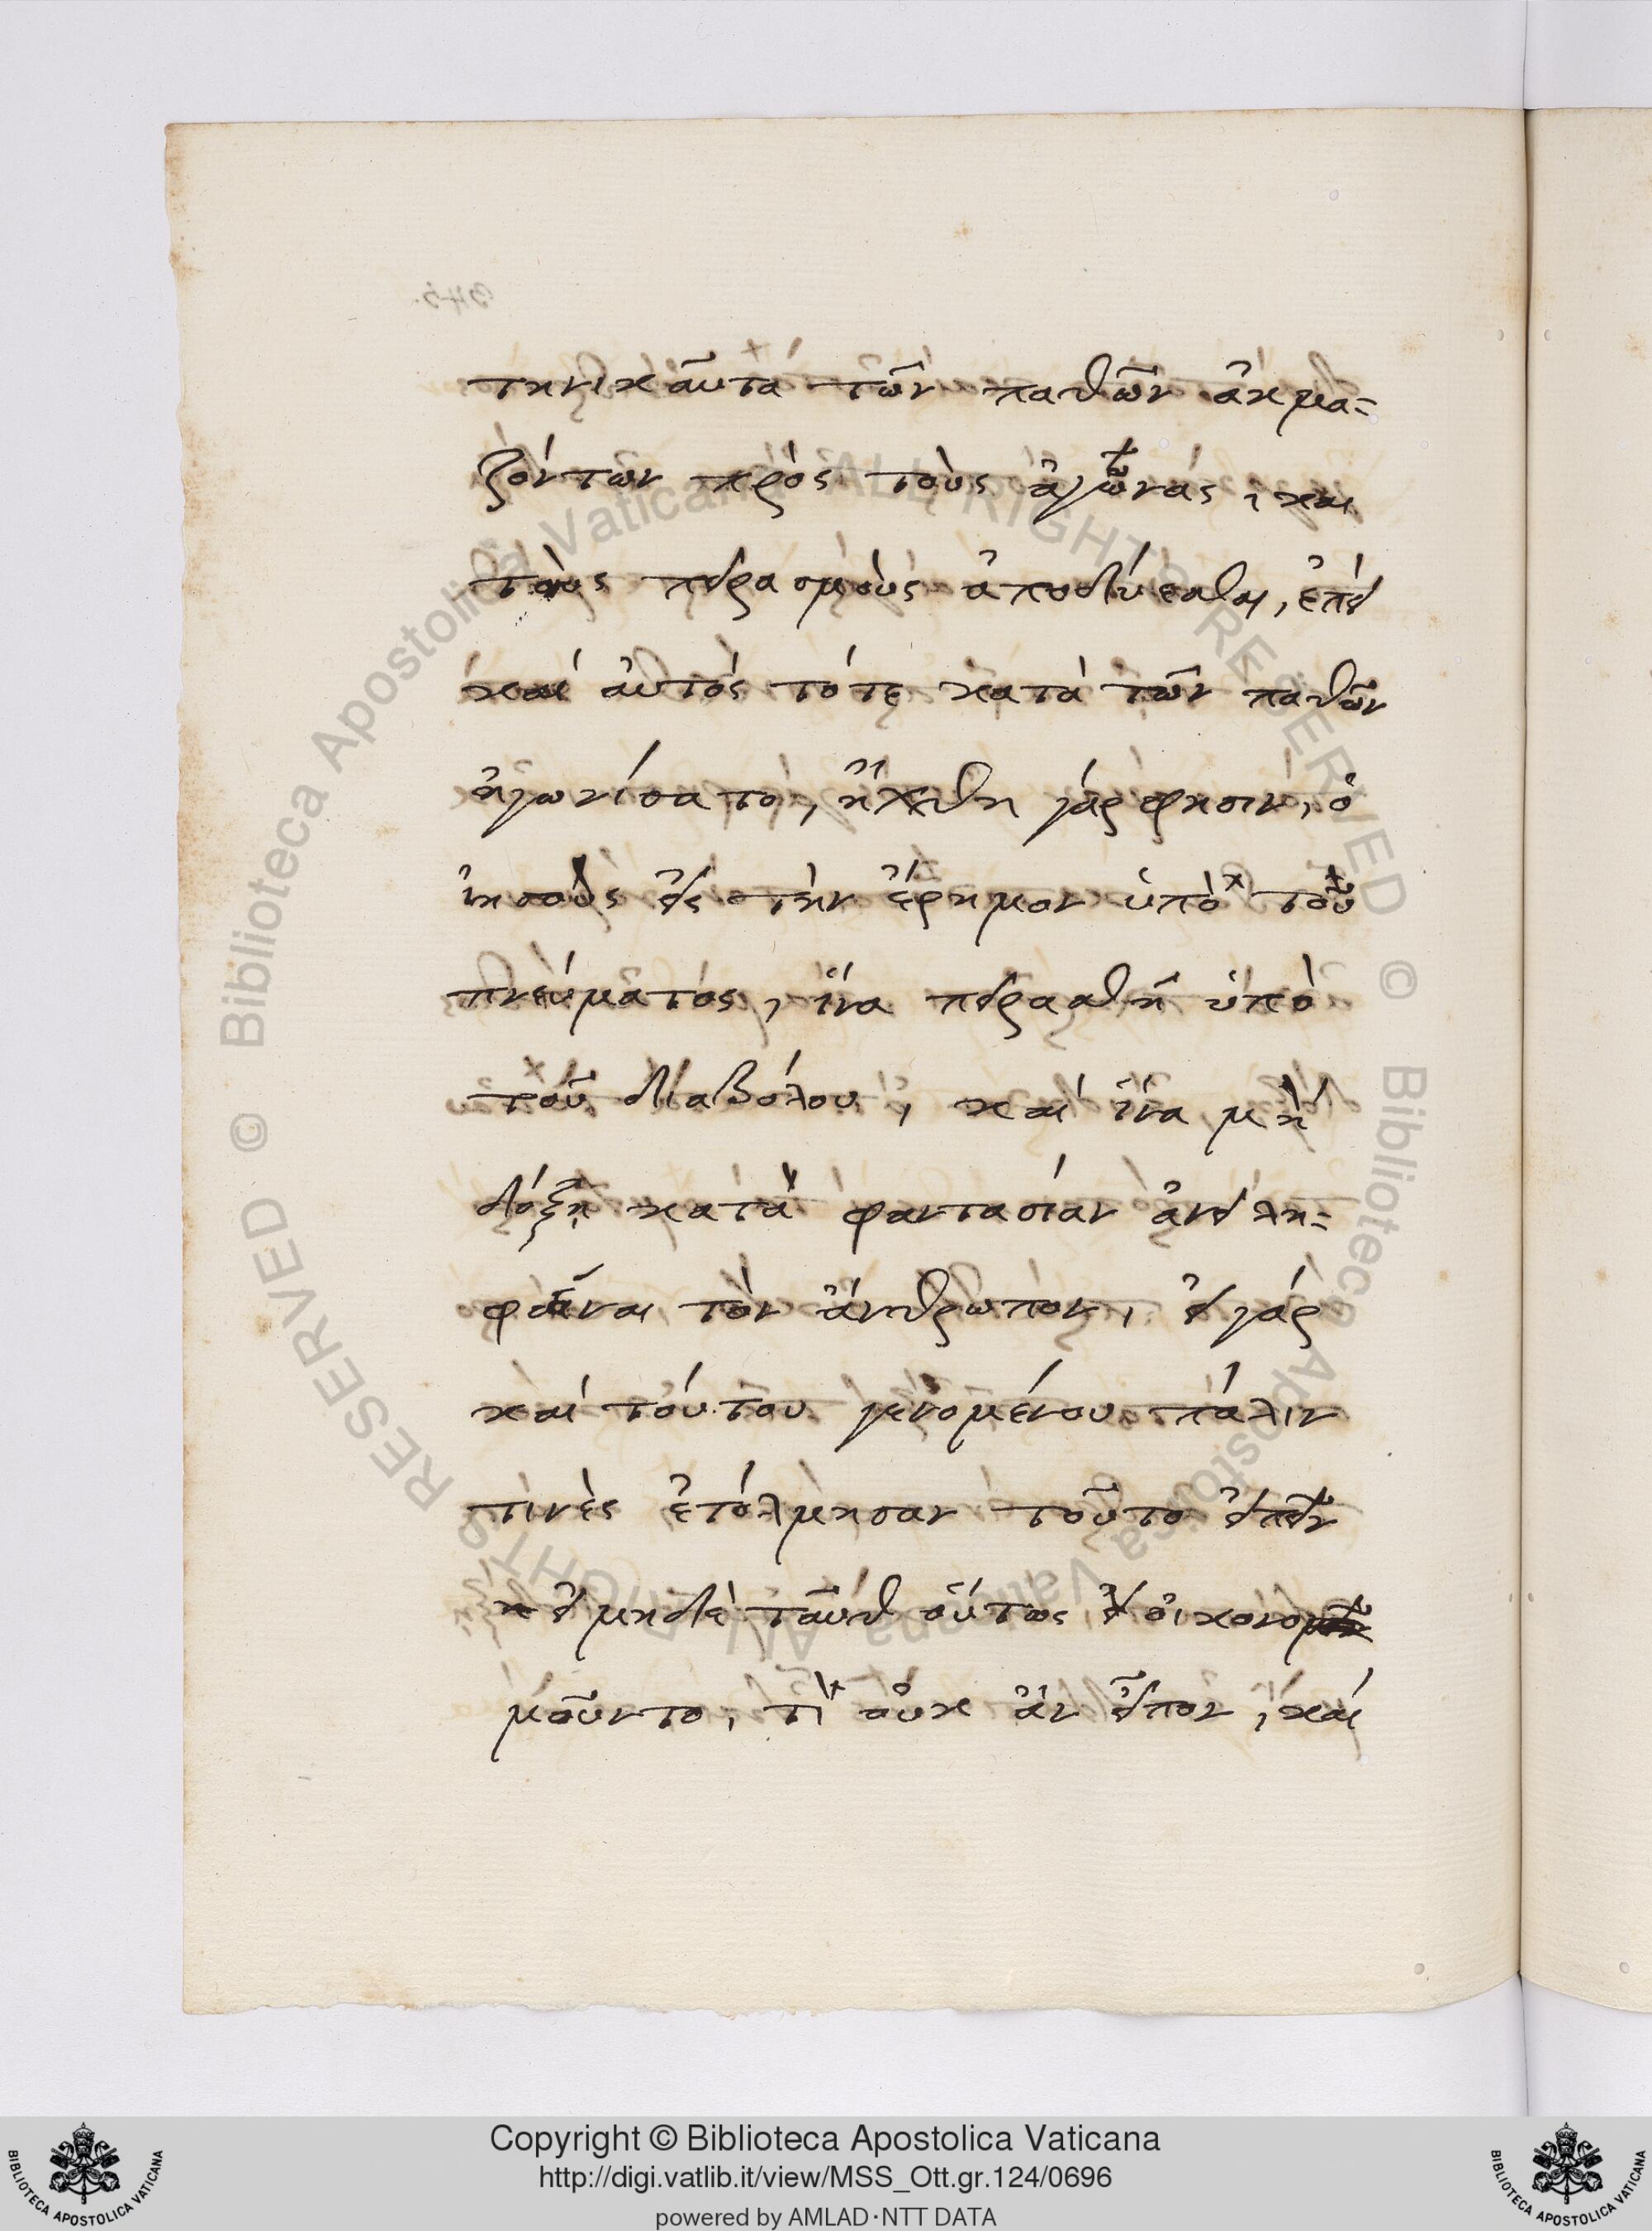 τηνικαῦτα τῶν παθῶν ἀκμα-
ζόντων πρὸς τοὺς ἀγῶνας, και
τοὺς πειρασμοὺς ἀποδύεσθαι, ἐπεὶ
καὶ αὐτός τότε κατὰ τῶν παθῶν
ἠγωνίσατο, ἤχθη γάρ φησιν, ὁ
ἰησοῦς εἰς τὴν ἔρημον ὑπὸ τοῦ
πνεύματος, ἵνα πειρασθῆ ὑπὸ
τοῦ διαβόλου, καί ἵνα μὴ
δόξη κατὰ φαντασίαν ἀνειλη-
φέναι τὸν ἄνθρωπον, εἰ γάρ
καί τούτου γενομένου πάλιν
τινὲς ἐτόλμησαν τοῦτο εἰπεῖν
εἰ μηδὲ ταῦθ οὕτως
μοῦντο, τί οὐκ ἂν εἶπον, καί
Copyright © Biblioteca Apostolica Vaticana
http://digi.vatlib.it/view/MSS_Ott.gr.124/0696
powered by AMLAD·NTT DATA
© Biblioteca Apostolica Vaticana ALL RIGHTS RESERVED © Biblioteca Apostolica Vaticana ALL RIGHTS RESERVED
BIBLIOTECA APOSTOLICA VATICANA
BIBLIOTECA APOSTOLICA VATICANA